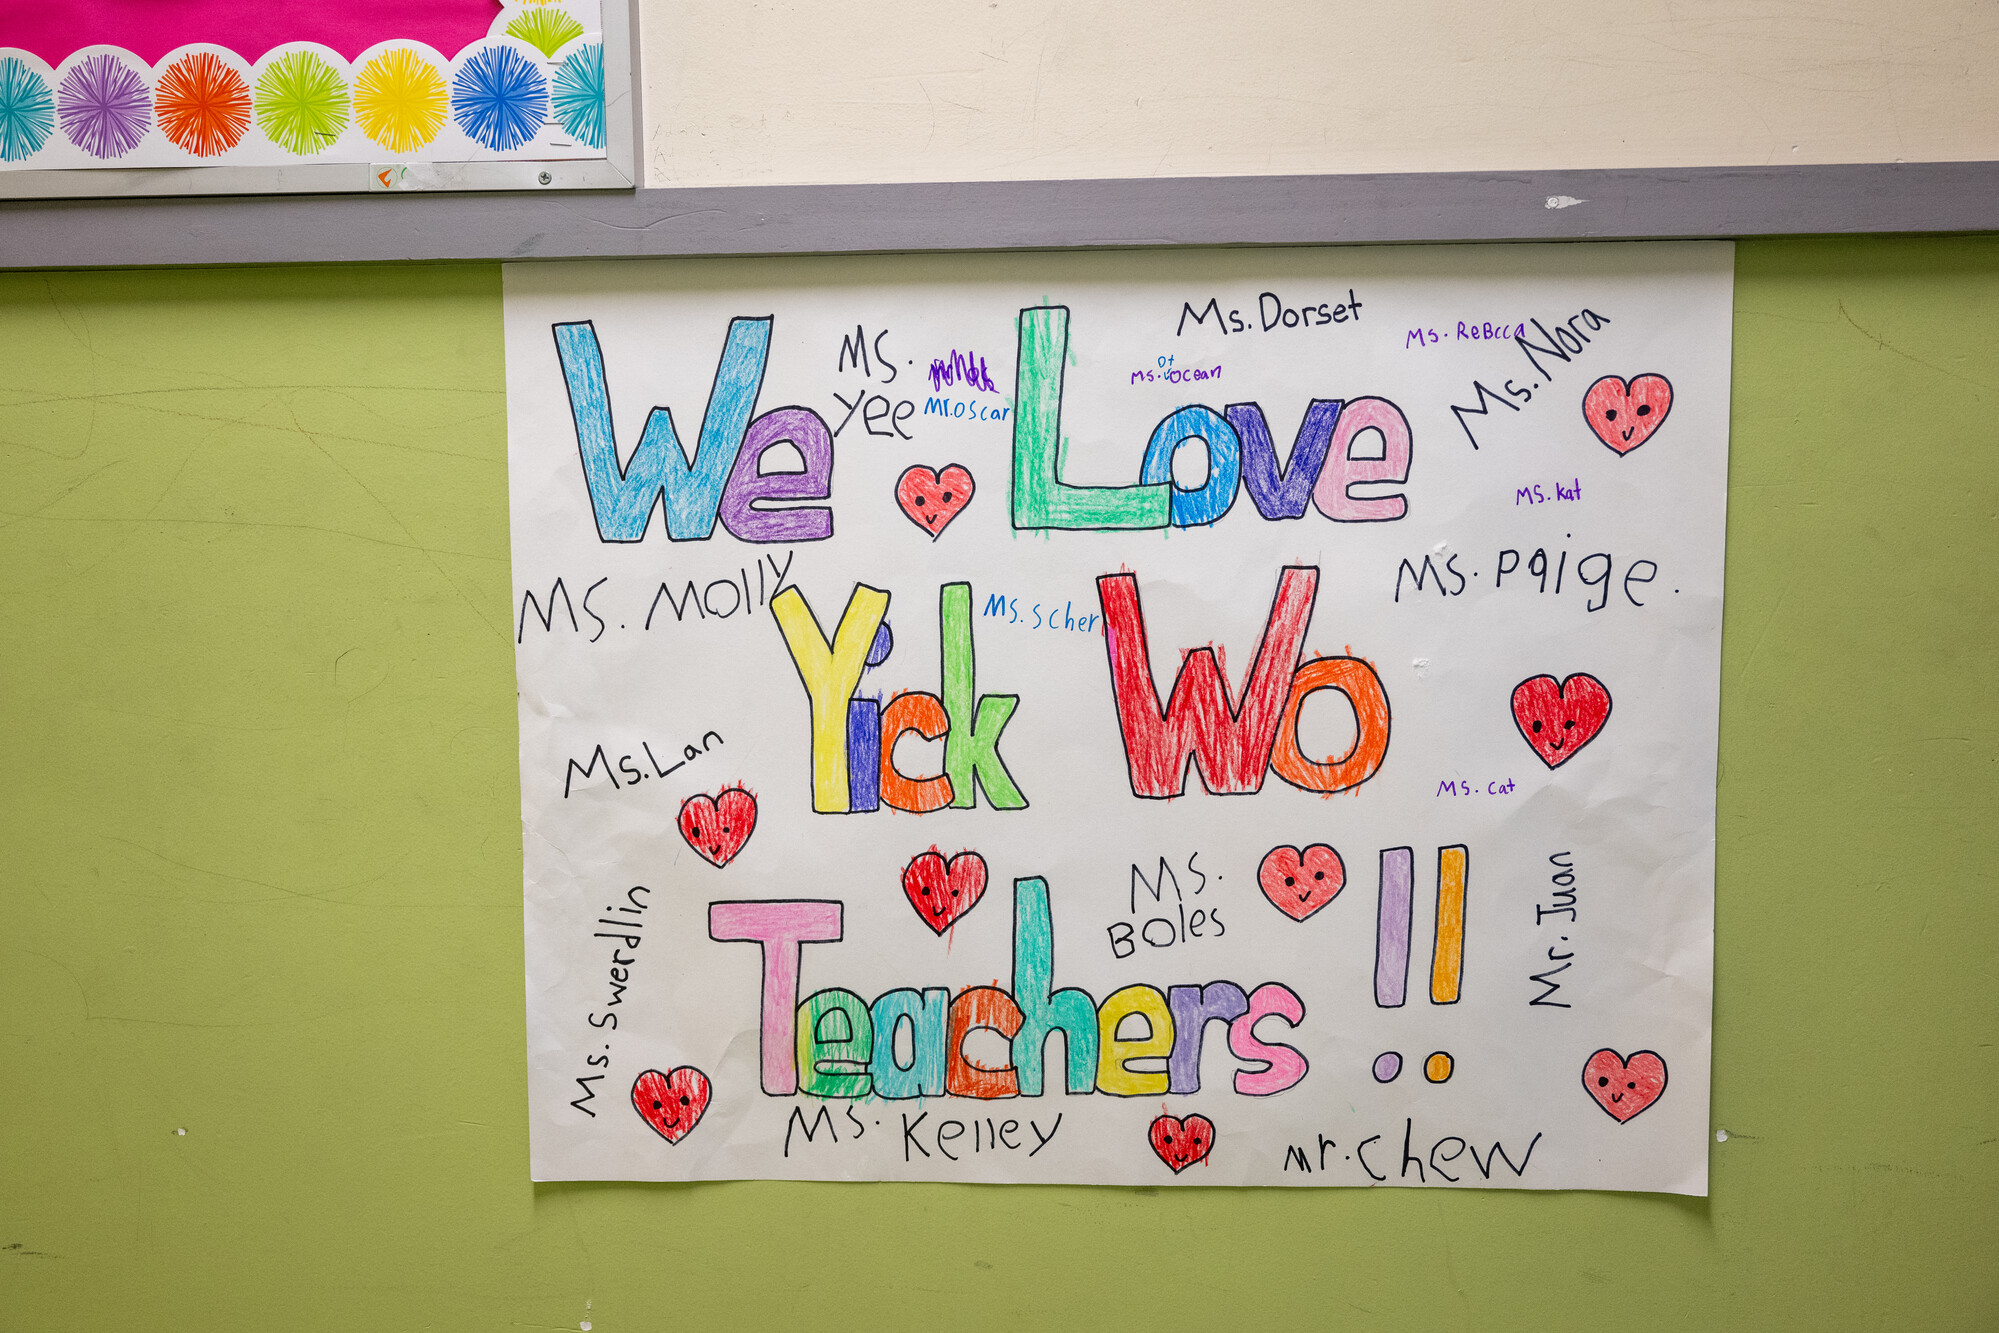 We Love
Ms. Dorset
Ms. ReBcca
Ms. Nora
Ms.
yee
Mr. oscar
Ms. Ocean
Ms. kat
Ms. Molly
Ms. scher
Ms. paige.
Yick Wo
Ms. Lan
Ms. cat
Ms.
Boles
Teachers!!
Ms. Swerdlin
Mr. Juan
Ms. Kelley
mr. chew